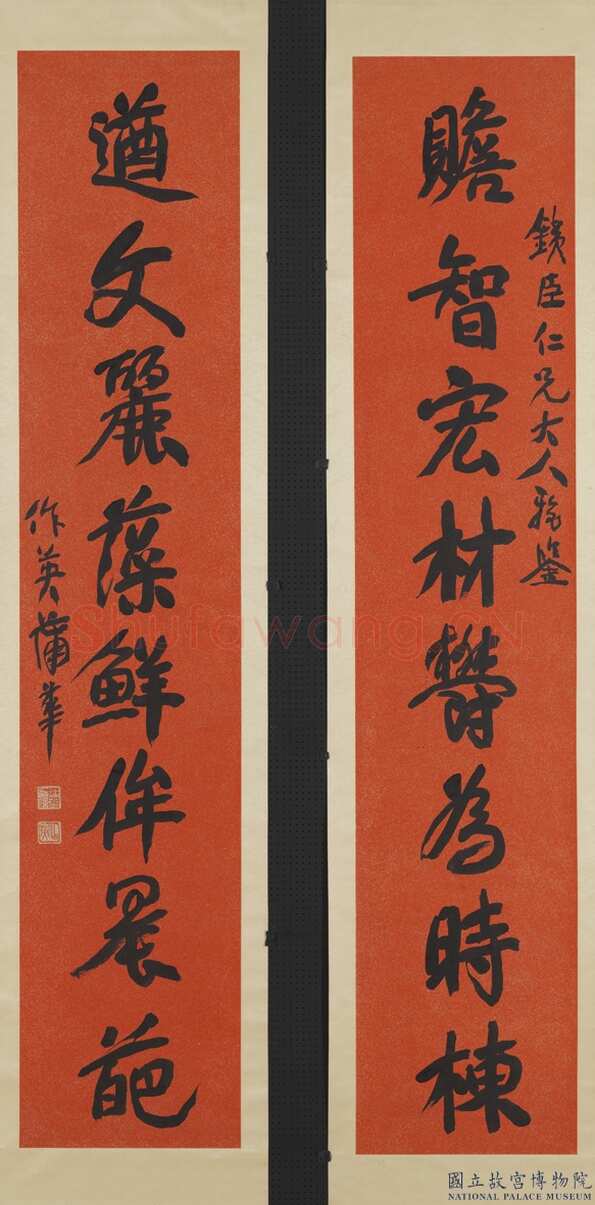 銕臣仁兄大人雅鑒
贍智宏材鬱為時棟
遒文麗藻鮮侔晨葩
作英蒲華
Shufawang.CN
國立故宮博物院
NATIONAL PALACE MUSEUM